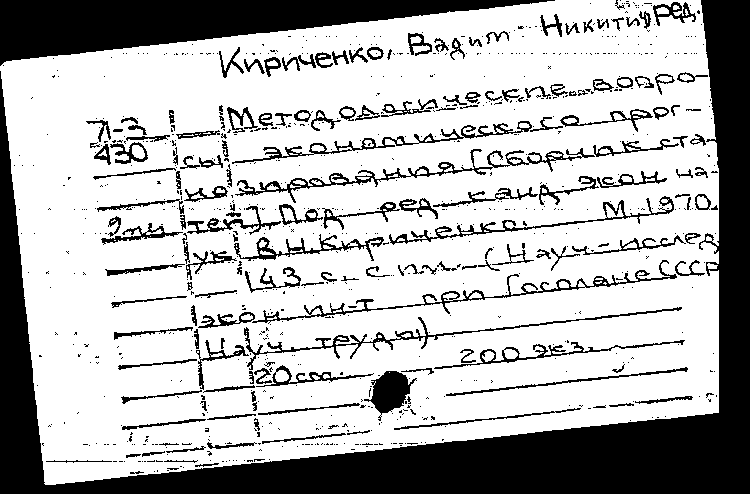 Кириченко, Вадим Никитич, ред.
Л-3
430
Методологические вопро-
сы экономического прог-
нозирования [Сборник ста-
тей]. Под ред. канд. экон. на-
ук В.Н. Кириченко. М., 1970.
143 с. с ил. (Науч.-исслед.
экон. ин-т при Госплане СССР
Науч. труды).
20 см. 200 экз.